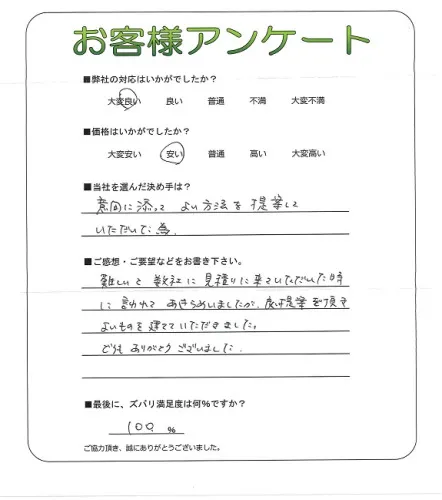 お客様アンケート
■弊社の対応はいかがでしたか？
大変良い 良い 普通 不満 大変不満
■価格はいかがでしたか？
大変安い 安い 普通 高い 大変高い
■当社を選んだ決め手は？
意向に添って よい方法を提案して
いただいた為.
■ご感想・ご要望などをお書き下さい。
難しいと数社に見積りに来ていただいた時
に言われて あきらめいましたが、提案を頂き
よいものを建てていただきました。
どうもありがとうございました.
■最後に、ズバリ満足度は何%ですか？
100 %
ご協力頂き、誠にありがとうございました。